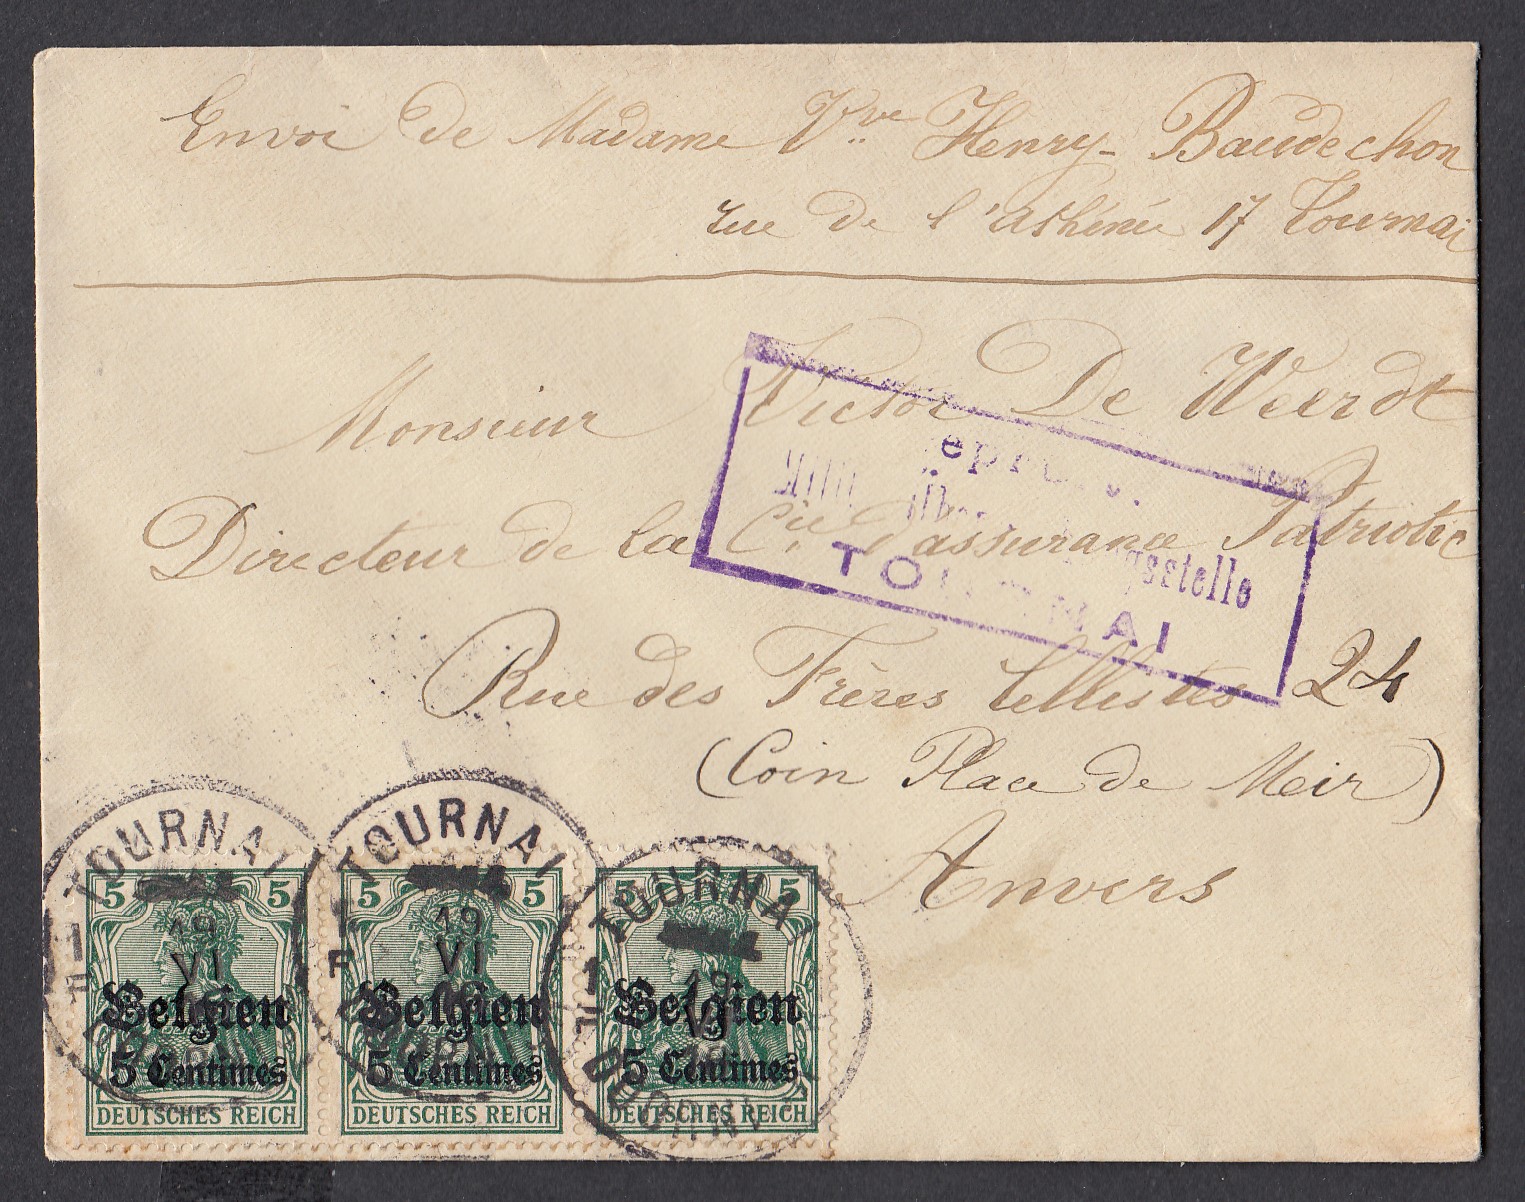 Envoi de Madame Vve Henry-Baudechon
rue de l'athénée 17 Tournai
Monsieur Victor De Weerdt
Directeur de la Cie d'assurance Patriotic
TOURNAI
Rue des Frères Cellistes 24
(Coin Place de Meir)
Anvers
TOURNAI
19
VI
DOORNIK
5 5
Belgien
5 Centimes
DEUTSCHES REICH
TOURNAI
19
VI
DOORNIK
5 5
Belgien
5 Centimes
DEUTSCHES REICH
TOURNAI
19
VI
DOORNIK
5 5
Belgien
5 Centimes
DEUTSCHES REICH